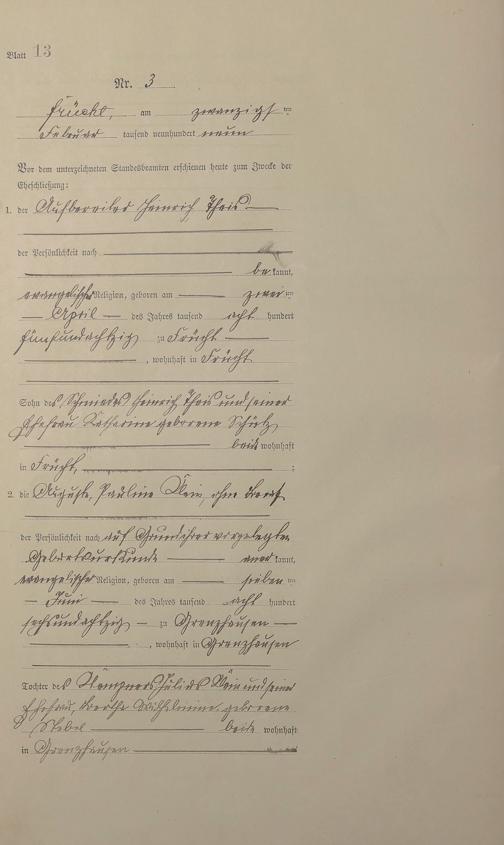 Blatt 13
Nr. 3
Frücht, am zwanzigsten
Februar tausend neunhundert neun
Vor dem unterzeichneten Standesbeamten erschienen heute zum Zwecke der
Eheschließung:
1. der Aufbereiter Heinrich Theis
der Persönlichkeit nach
bekannt,
evangelischer Religion, geboren am zweiten
April des Jahres tausend acht hundert
fünfundachtzig zu Frücht
, wohnhaft in Frücht
Sohn des Schmiedes Heinrich Theis und seiner
Ehefrau Katharine geborene Schütz
beide wohnhaft
in Frücht ;
2. die Auguste, Pauline ohne Beruf
der Persönlichkeit nach auf Grund ihrer vorgelegten
Geburtsurkunde anerkannt,
evangelischer Religion, geboren am sieben ten
Juni des Jahres tausend acht hundert
sechsundachtzig zu Grenzhausen
, wohnhaft in Grenzhausen
Tochter des und seiner
Ehefrau Bertha Wilhelmine geborene
beide wohnhaft
in Grenzhausen